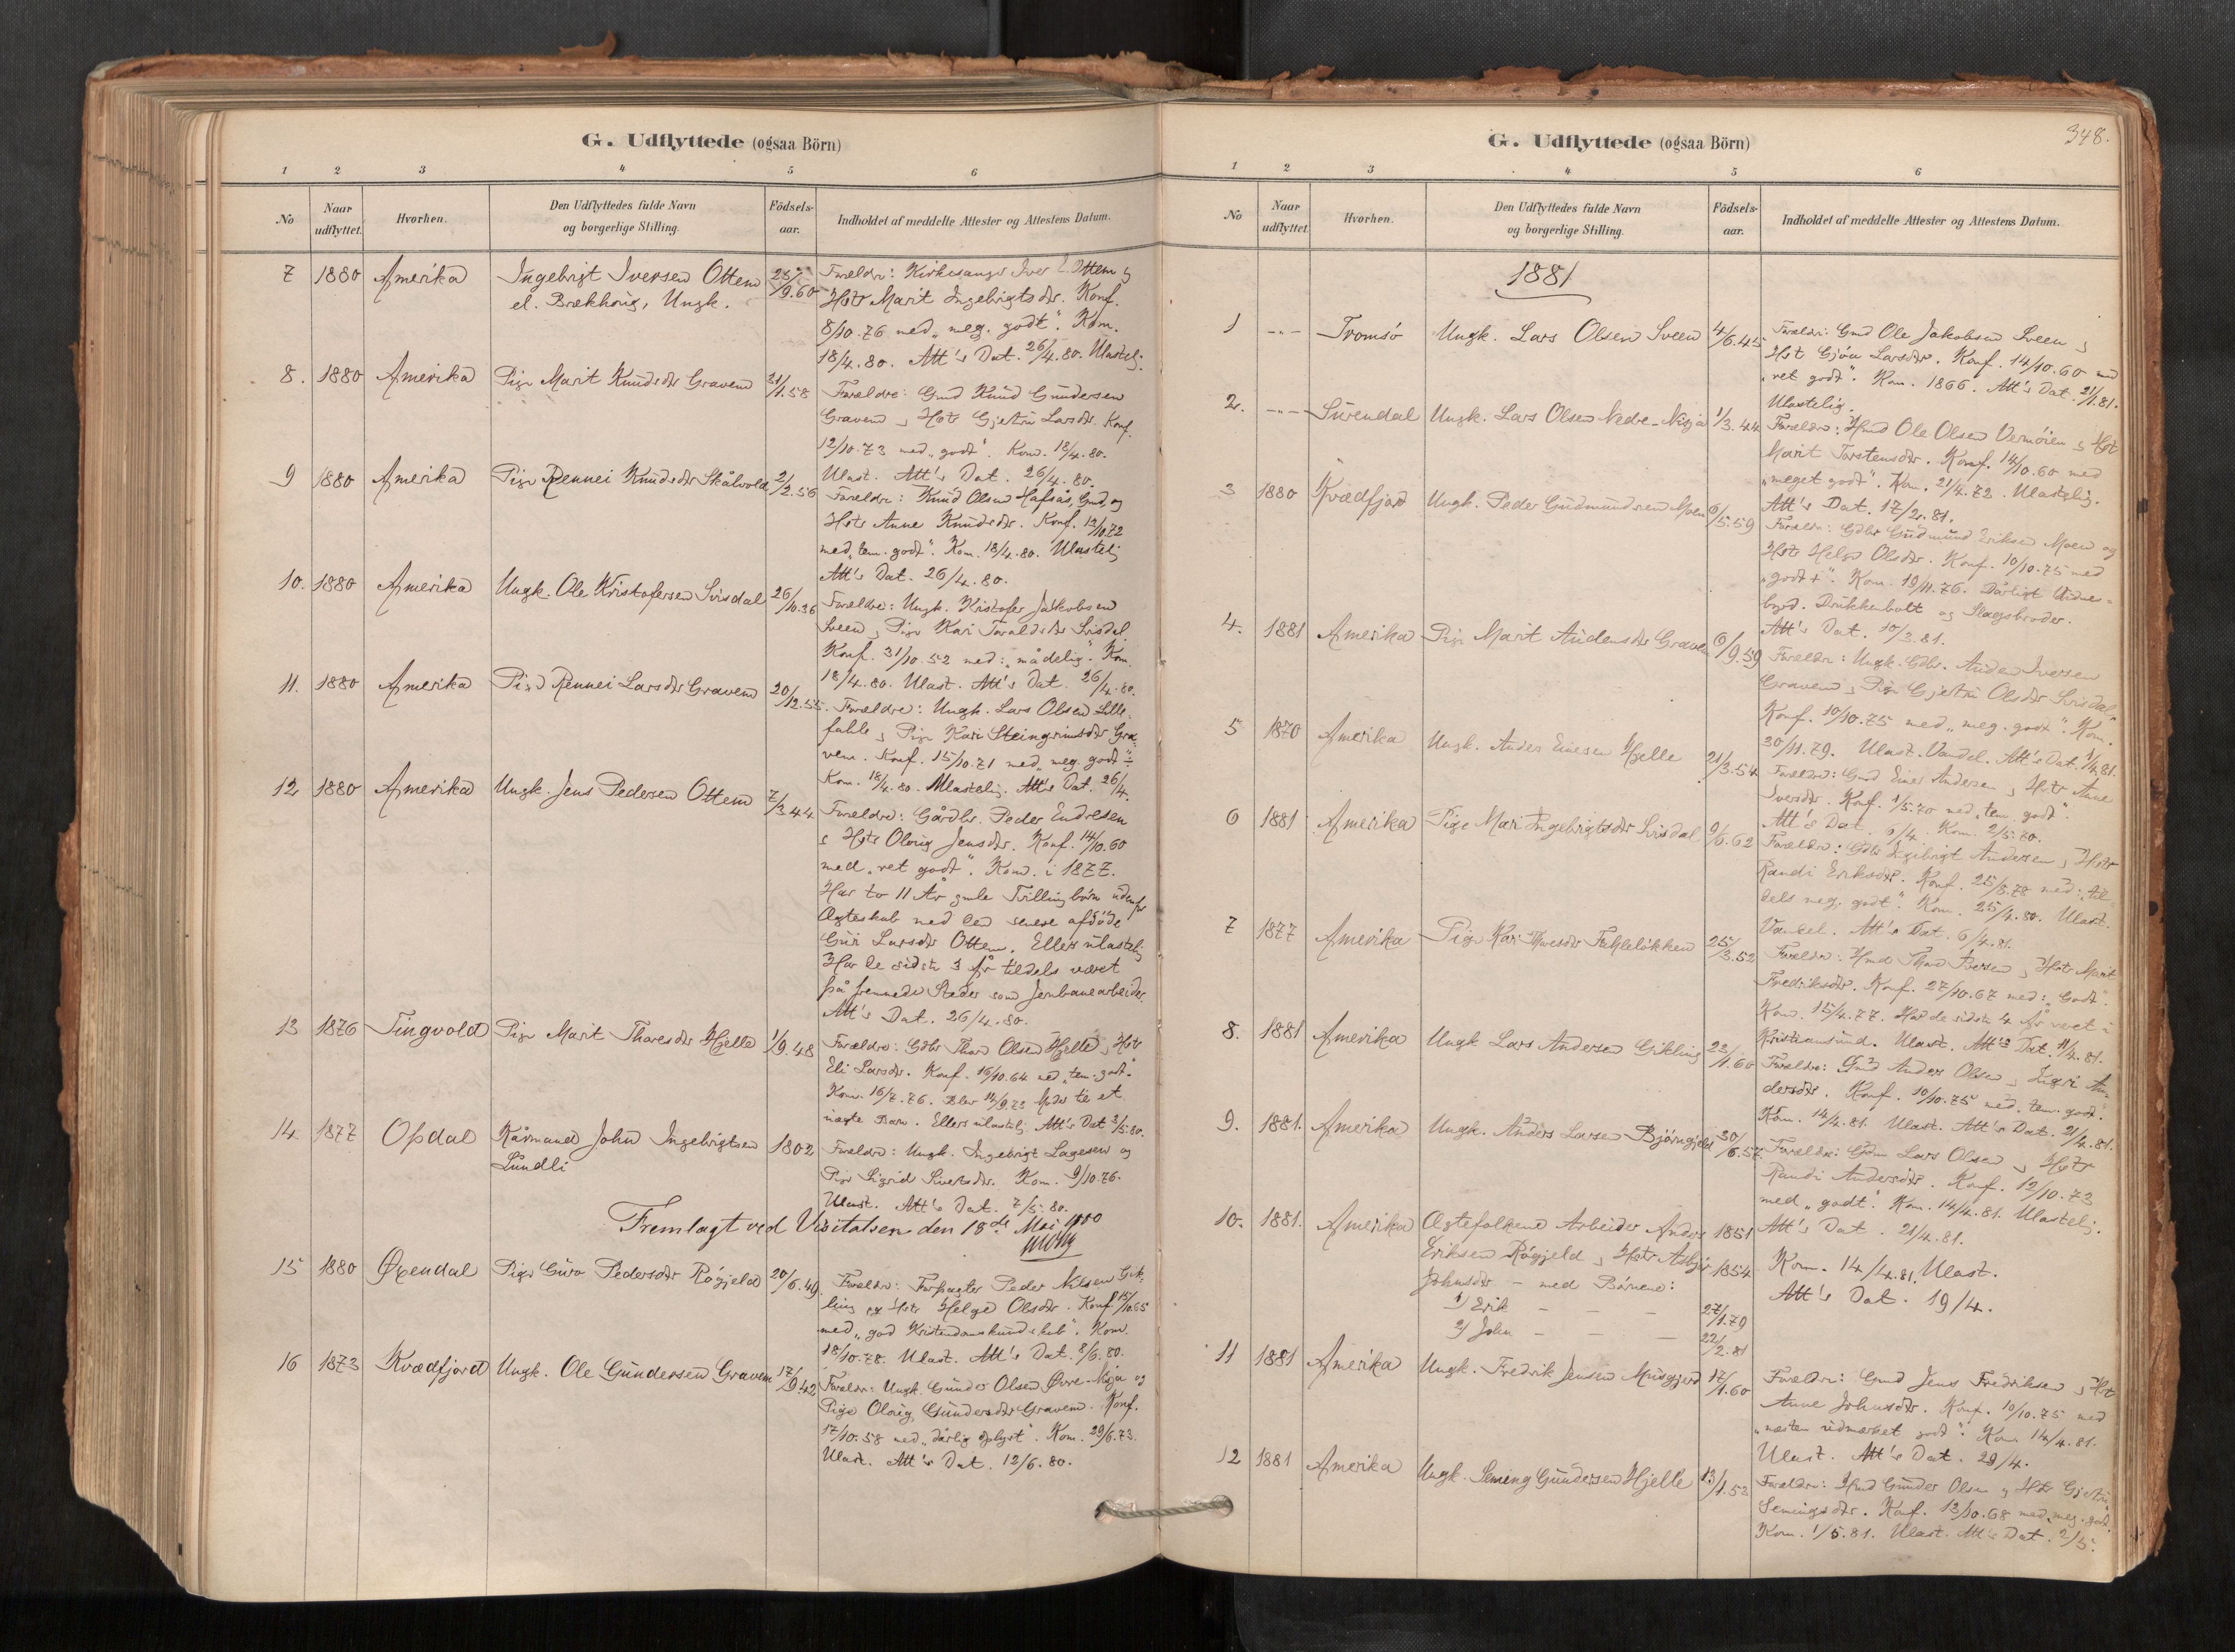 G. Udflyttede (ogsaa Börn)
1 2 3 4 5 6
No
Naar udflyttet.
Hvorhen.
Den Udflyttedes fulde Navn
og borgerlige Stilling.
Födsels-
aar.
Indholdet af meddelte Attester og Attestens Datum.
7 1880 Amerika Ingebrigt Iversen Ottem
el. Brækhaug, Ungk.
Forældre: Kirkesanger Iver E. Ottem og
Hstr Marit Ingebrigtsdr. Konf.
8/10.76 med "meg. godt". Kom.
18/4.80. Att's Dat. 26/4.80. Ulastelig.
8. 1880 Amerika Pige Marit Knudsdr Gravem 31/1.58
Forældre: Gmd Knud Gundersen
Gravem og Hstr Gjertru Larsdr. Konf.
12/10.73 med "godt". Kom. 18/4.80.
Ulast. Att's Dat. 26/4.80.
9 1880 Amerika Pige Rennei Knudsdr Skålvold 2/2.56
Forældre: Knud Olsen Hafsås, Gmd, og
Hstr Anne Knudsdr. Konf. 13/10.72
med "tem. godt". Kom. 18/4.80. Ulastelig
Att's Dat. 26/4.80.
10. 1880 Amerika Ungk. Ole Kristofersen Svisdal 26/10.36
Forældre: Ungk. Kristofer Jakobsen
Sveen og Pige Kari Toraldsdr Svisdal.
Konf. 31/10.52 med: "mådelig". Kom.
18/4.80. Ulast. Att's Dat. 26/4.80.
11. 1880 Amerika Pige Rennei Larsdr Gravem 20/12.55.
Forældre: Ungk. Lars Olsen Lille-
fahle og Pige Kari Steingrimsdr Gra-
vem. Konf. 15/10.71 med "meg. godt ÷"
Kom. 18/4.80. Ulastelig. Att's Dat. 26/4.
12 1880 Amerika Ungk. Jens Pedersen Ottem 7/3.44
Forældre: Gårdbr. Peder Endresen
og Hstr Olaug Jensdr. Konf. 14/10.60
med "ret godt". Kom. i 1877.
Har to 11 År gmle Tvillingbørn udenfor
Ægteskab med den senere afdøde
Guri Larsdr Ottem. Ellers ulastelig
Har de sidste 3 År tildels været
på fremmede Steder som Jernbanearbeider.
Att's Dat. 26/4.80.
13 1876 Tingvold Pige Marit Tharesdr Hjelle 1/9.48
Forældre: Gdbr Thore Olsen Hjelle og Hstr
Eli Larsdr. Konf. 16/10.64 med "tem. godt".
Kom. 16/7.76. Blev 14/9.73 Moder til et
uægte Barn. Ellers ulastelig Att's Dat 3/5.80.
14 1877 Opdal Kårmand John Ingebrigtsen 1802
Lundli
Forældre: Ungk. Ingebrigt Lagesen og
Pige Sigrid Sivertsdr. Kom. 9/10.76.
Ulast. Att's Dat. 7/5.80.
Fremlagt ved Visitatsen den 18de Mai 1880
15 1880 Øxendal Pige Guro Pedersdr Røgjeld 20/6.49.
Forældre: Forpagter Peder Nilsen Gik-
ling og Hstr Helge Olsdr. Konf. 15/10.65
med "god Kristendomskundskab". Kom.
18/10.78. Ulast. Att's Dat. 8/6.80.
16 1873 Kvædfjord Ungk. Ole Gundersen Gravem 17/9.42
Forældre: Ungk. Gunder Olsen Øvre-Nisja og
Pige Olaug Gundersdr Gravem. Konf.
17/10.58 med "dårlig oplyst". Kom. 29/6.73.
Ulast. Att's Dat. 12/6.80.
348.
G. Udflyttede (ogsaa Börn)
1 2 3 4 5 6
No
Naar udflyttet.
Hvorhen.
Den Udflyttedes fulde Navn
og borgerlige Stilling.
Födsels-
aar.
Indholdet af meddelte Attester og Attestens Datum.
1881
1 -"- Tromsø Ungk. Lars Olsen Sveen 4/6.45
Forældre: Gmd Ole Jakobsen Sveen og
Hst Gjøa Larsdr. Konf. 14/10.60 med
"ret godt". Kom. 1866. Att's Dat. 21/1.81.
Ulastelig.
2. -"- Surendal Ungk. Lars Olsen Nedre-Nisja 1/3.44
Forældre: Hmd Ole Olsen Vermøien og Hst
Marit Torstensdr. Konf. 14/10.60 med
"meget godt". Kom. 21/4.72. Ulastelig.
Att's Dat. 17/2.81.
3 1880 Kvædfjord Ungk. Peder Gudmundsen Moen 6/5.59
Forældre: Gdbr Gudmund Eriksen Moen og
Hstr Helge Olsdr. Konf. 10/10.75 med
"godt +". Kom. 19/11.76. Dårligt Vidnes-
byrd. Drukkenbolt og Slagsbroder.
Att's Dat. 10/3.81.
4. 1881 Amerika Pige Marit Audensdr Gravem 6/9.59
Forældre: Ungk. Gdbr. Auden Iversen
Gravem og Pige Gjertru Olsdr Svisdal
Konf. 10/10.75 med "meg. godt". Kom.
30/11.79. Ulast. Vandel. Att's Dat. 1/4.81.
5 1870 Amerika Ungk. Anders Einersen Hjelle 21/3.54
Forældre: Gmd Einer Andersen og Hstr Anne
Iversdr. Konf. 1/5.70 med "tem. godt".
Att's Dat. 6/4. Kom. 2/5.70.
6 1881 Amerika Pige Mari Ingebrigtsdr Svisdal 9/6.62
Forældre: Gdbr Ingebrigt Andersen og Hstr
Randi Eriksdr. Konf. 25/8.78 med: "til-
dels meg. godt". Kom. 25/4.80. Ulast.
Vandel. Att's Dat. 6/4.81.
7 1877 Amerika Pige Kari Thoresdr Fahleløkken 25/3.52
Forældre: Hmd Thore Iversen og Hstr Marit
Fredriksdr. Konf. 27/10.67 med: "Godt".
Kom. 15/4.77. Har de sidste 4 År været i
Kristiansund. Ulast. Att's Dat. 11/4.81.
8. 1881 Amerika Ungk Lars Andersen Gikling 23/1.60
Forældre: Gmd Anders Olsen og Ingri An-
dersdr. Konf. 10/10.75 med "tem. godt".
Kom. 14/4.81. Ulast. Att's Dat. 21/4.81.
9. 1881. Amerika Ungk. Anders Larsen Bjørngjeld 30/6.57.
Forældre: Gdm Lars Olsen og Hstr
Randi Andersdr. Konf. 12/10.73
med "godt". Kom. 14/4.81. Ulastelig.
Att's Dat. 21/4.81.
10. 1881. Amerika Ægtefolkene Arbeider Anders 1851
Eriksen Røgjeld og Hstr Asbjør 1854
Johnsdr – med Børnene:
1) Erik – – – 27/1.79
2) John – – – 22/2.81
Kom. 14/4.81. Ulast.
Att's Dat. 19/4.
11 1881 Amerika Ungk. Fredrik Jensen Musgjerd 17/1.60
Forældre: Gmd Jens Fredriksen og Hst
Anne Johnsdr. Konf. 10/10.75 med
"næsten udmærket godt". Kom 14/4.81.
Ulast. Att's Dat. 29/4.
12 1881 Amerika Ungk. Seming Gundersen Hjelle 13/1.53
Forældre: Hmd Gunder Olsen og Hst Gjertru
Semingsdr. Konf. 13/10.68 med "meg. godt".
Kom. 1/5.81. Ulast. Att's Dat. 2/5.